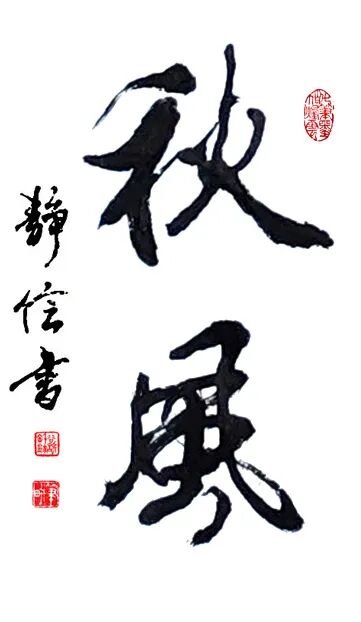 秋風
靜信書